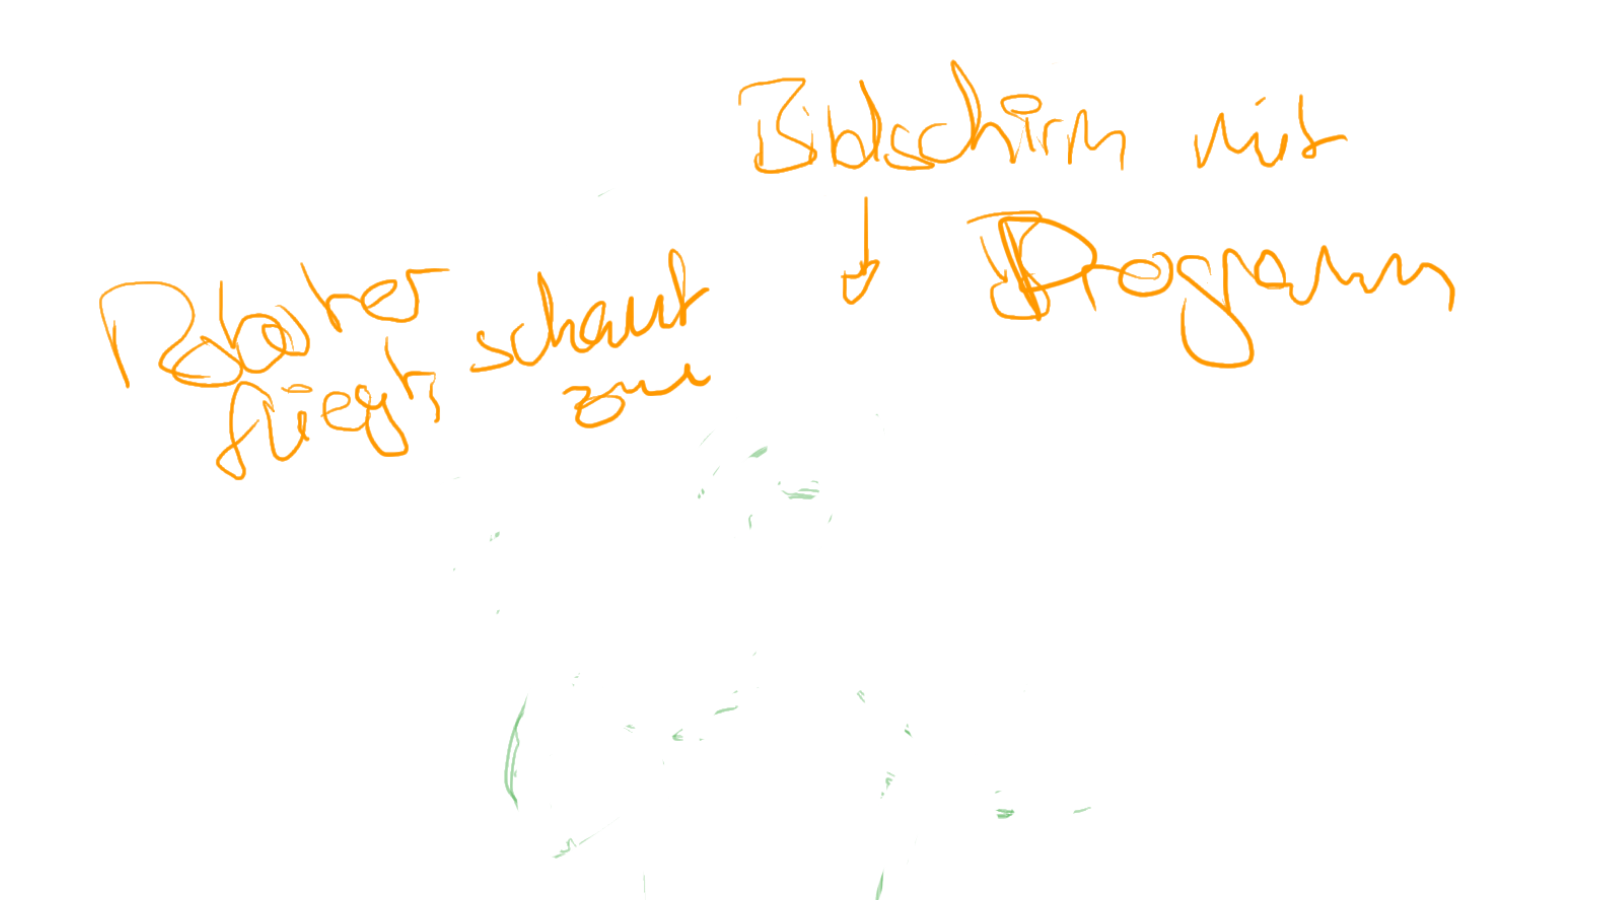 Bildschirm mit
Programm
Roboter
fliegt
schaut
zu